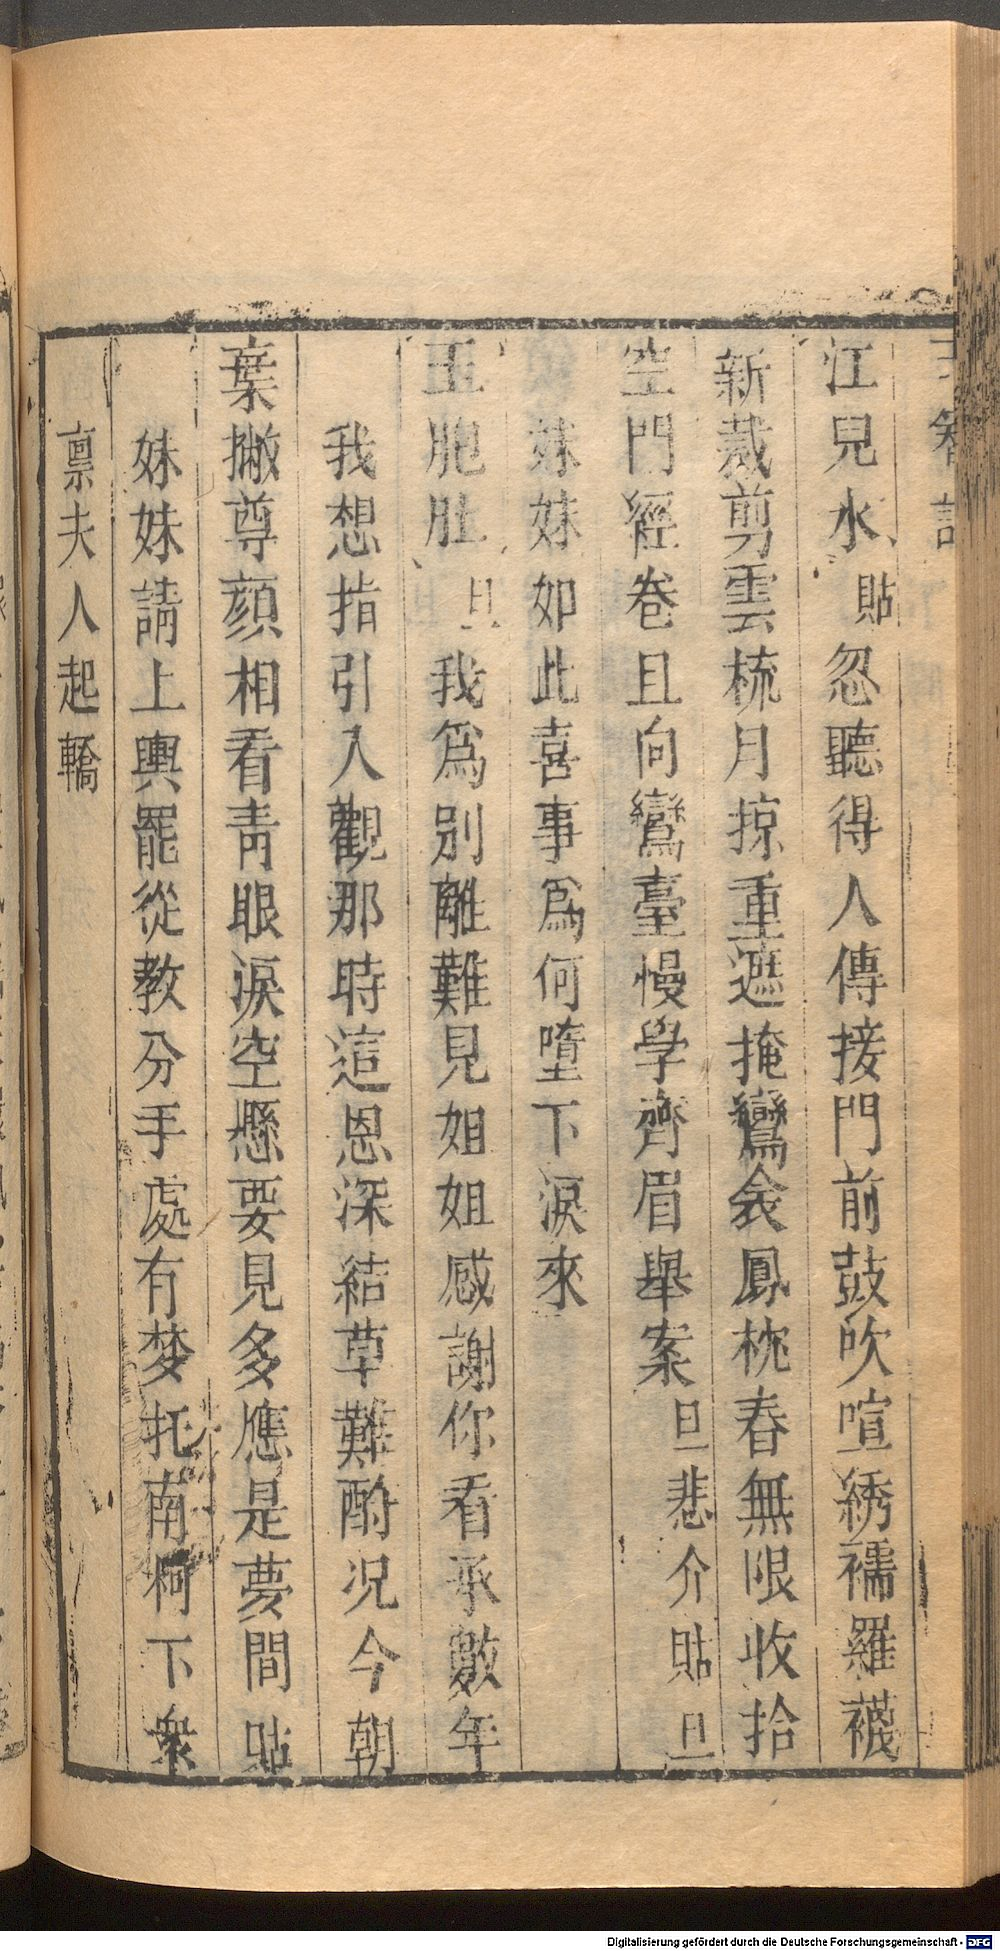 江兒水貼忽聽得人傳接門前鼓吹喧綉襦羅襪
新裁剪雲梳月掠重遮掩鸞衾鳳枕春無限收拾
空門經卷且向鸞臺慢學齊眉舉案旦悲介貼旦
妹妹如此喜事爲何墮下淚來
玉胞肚旦我爲別離難見姐姐感謝你看承數年
我想指引入觀那時這恩深結草難酧况今朝
葉撇尊顔相看靑眼淚空懸要見多應是夢間貼
妹妹請上輿罷從教分手處有梦托南柯下衆
禀夫人起轎
Digitalisierung gefördert durch die Deutsche Forschungsgemeinschaft - DFG